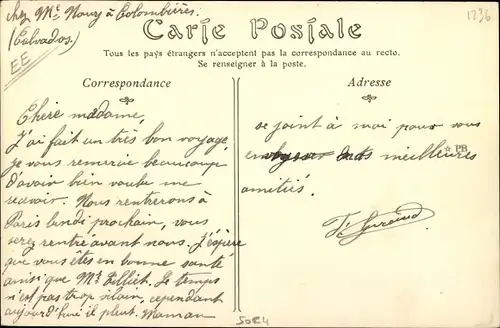 chez Mr Noury à Colombières.
(Calvados)
EE
1236
Carte Postale
Tous les pays étrangers n'acceptent pas la correspondance au recto.
Se renseigner à la poste.
Correspondance
Chère madame,
J'ai fait un très bon voyage,
je vous remercie beaucoup
d'avoir bien voulu me
recevoir. Nous rentrerons à
Paris lundi prochain, vous
serez rentré avant nous. J'espère
que vous êtes en bonne santé
ainsi que Mr
Le temps
n'est pas trop vilain, cependant
aujourd'hui il pleut. Maman
Adresse
se joint à moi pour vous
meilleures
amitiés.
PB